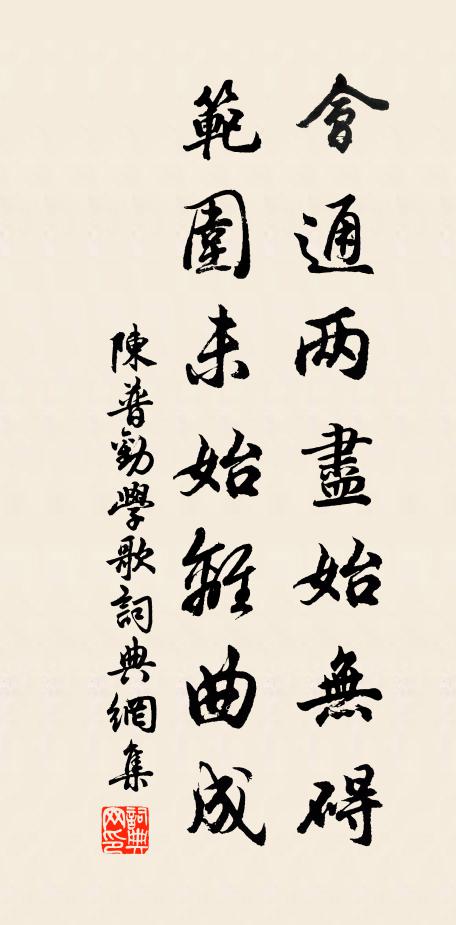 會通两盡始無碍
範圍未始離曲成
陳普勸學歌詞典網集
詞典網印